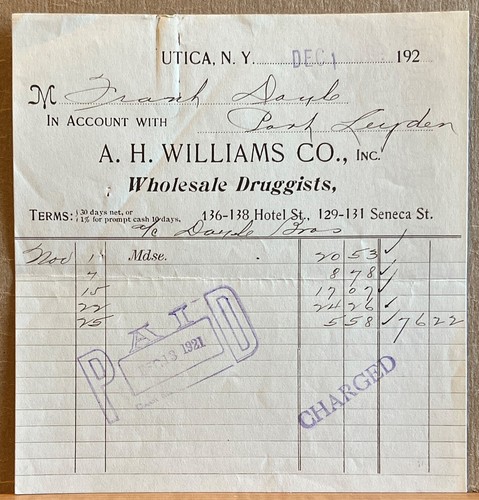 UTICA, N. Y. DEC 1 192
M Frank Doyle
IN ACCOUNT WITH Port Leyden
A. H. WILLIAMS CO., INC.
Wholesale Druggists,
TERMS: 30 days net, or 1% for prompt cash 10 days. 136-138 Hotel St., 129-131 Seneca St.
a/c Doyle Bros
Nov 1 Mdse. 20 53 ✓
7 8 78 ✓
15 17 07 ✓
22 24 26 ✓
25 5 58 ✓ 76 22
PAID
DEC 13 1921
CHARGED